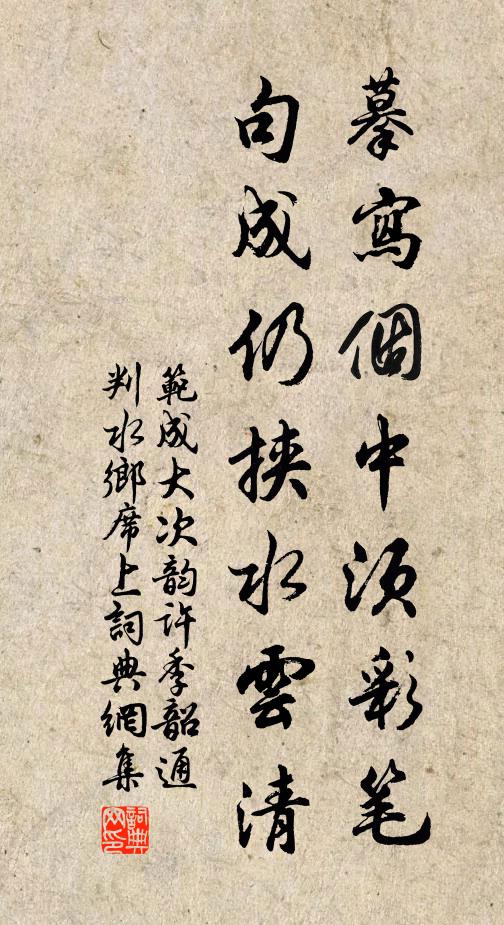 摹寫個中須彩笔
句成仍挟水雲清
範成大次韵許季韶通
判水鄉席上詞典網集
詞典
网印